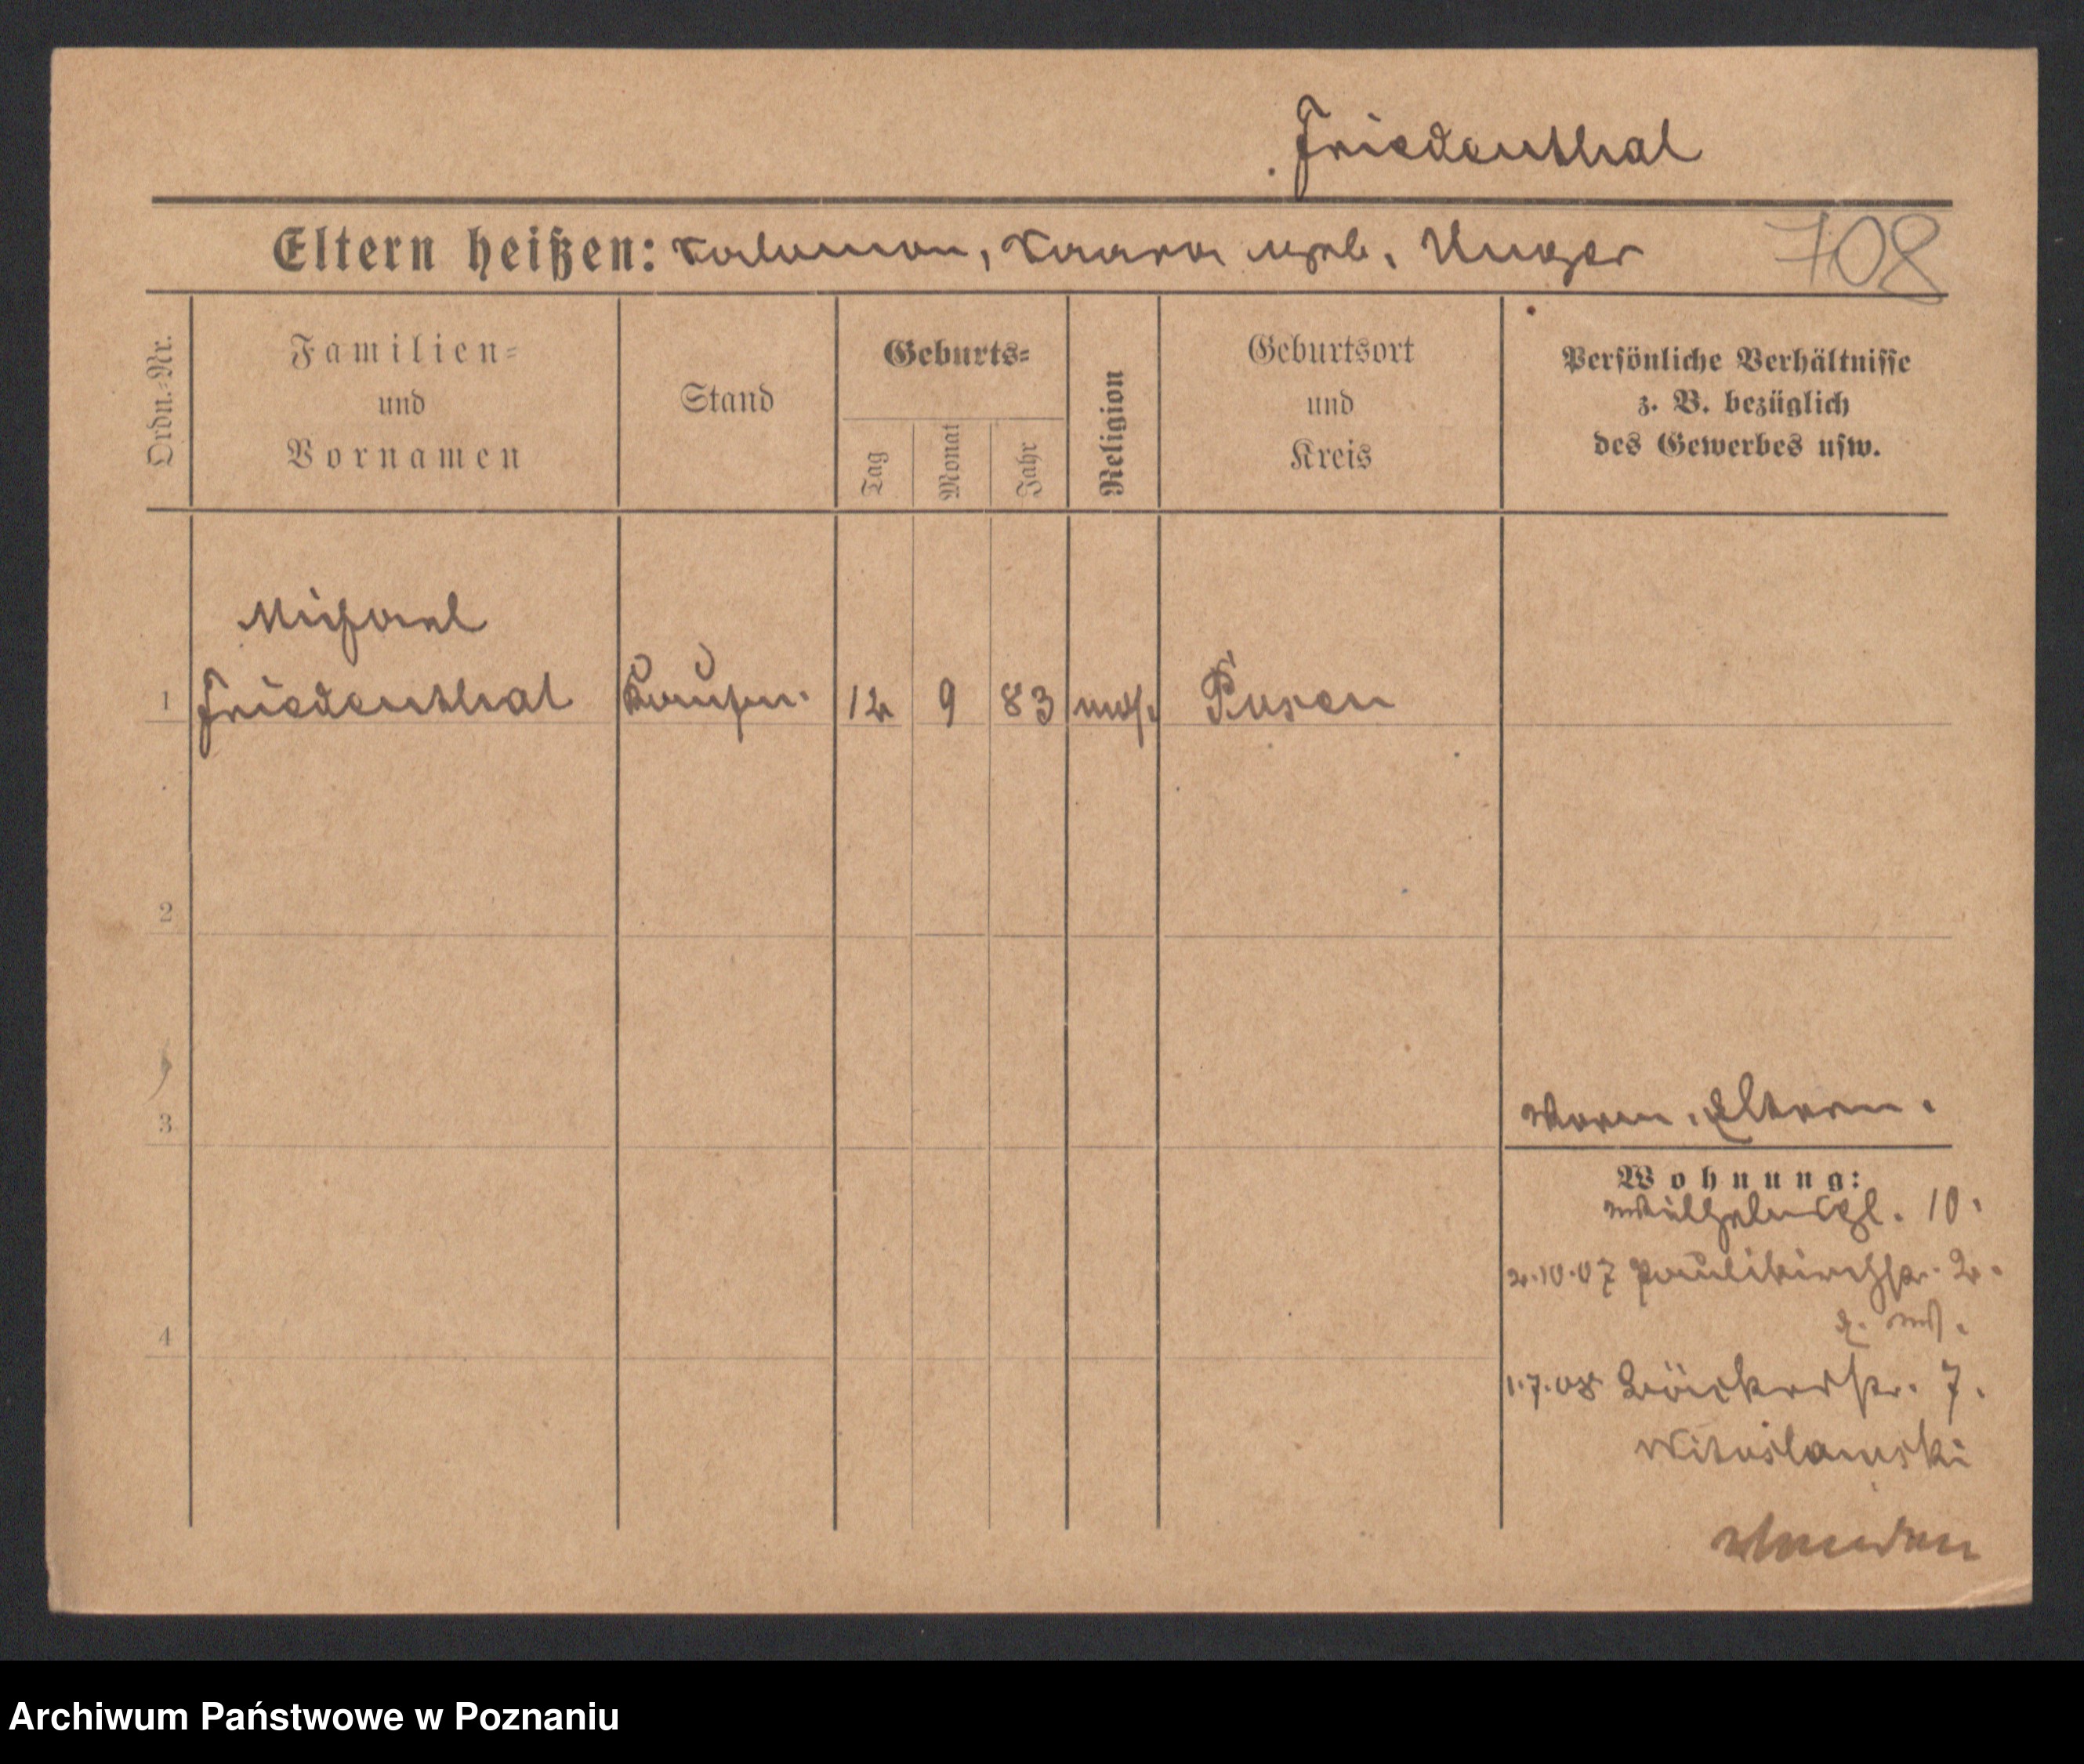 Friedenthal
Eltern heißen: Salomon, geb. Unger
708
Ordn.-Nr.
Familien=
und
Vornamen
Stand
Geburts=
Tag
Monat
Jahr
Religion
Geburtsort
und
Kreis
Persönliche Verhältnisse
z. B. bezüglich
des Gewerbes usw.
Michael
1 Friedenthal Kaufm. 12 9 83 mos. Posen
2
3
Eltern.
Wohnung:
Wilhelmspl. 10.
2.10.07 Paulikirchstr. 2.
4
1.7.08 Bäckerstr. 7.
Witoslawski
Archiwum Państwowe w Poznaniu